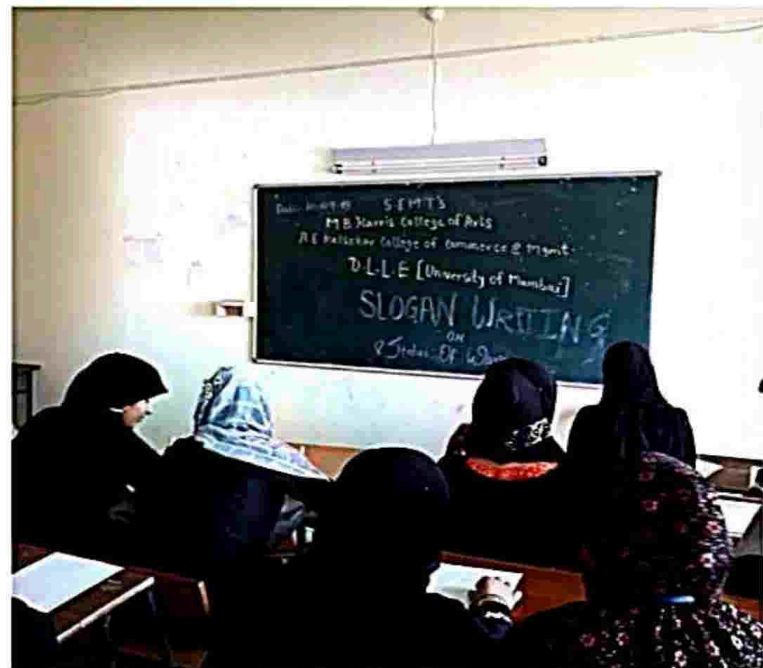 Date:
S.E.M.T'S
M.B. Harris College of Arts
A.E. Kalsekar College of Commerce & Mgmt.
D.L.L.E [University of Mumbai]
SLOGAN WRITING
ON
Status Of